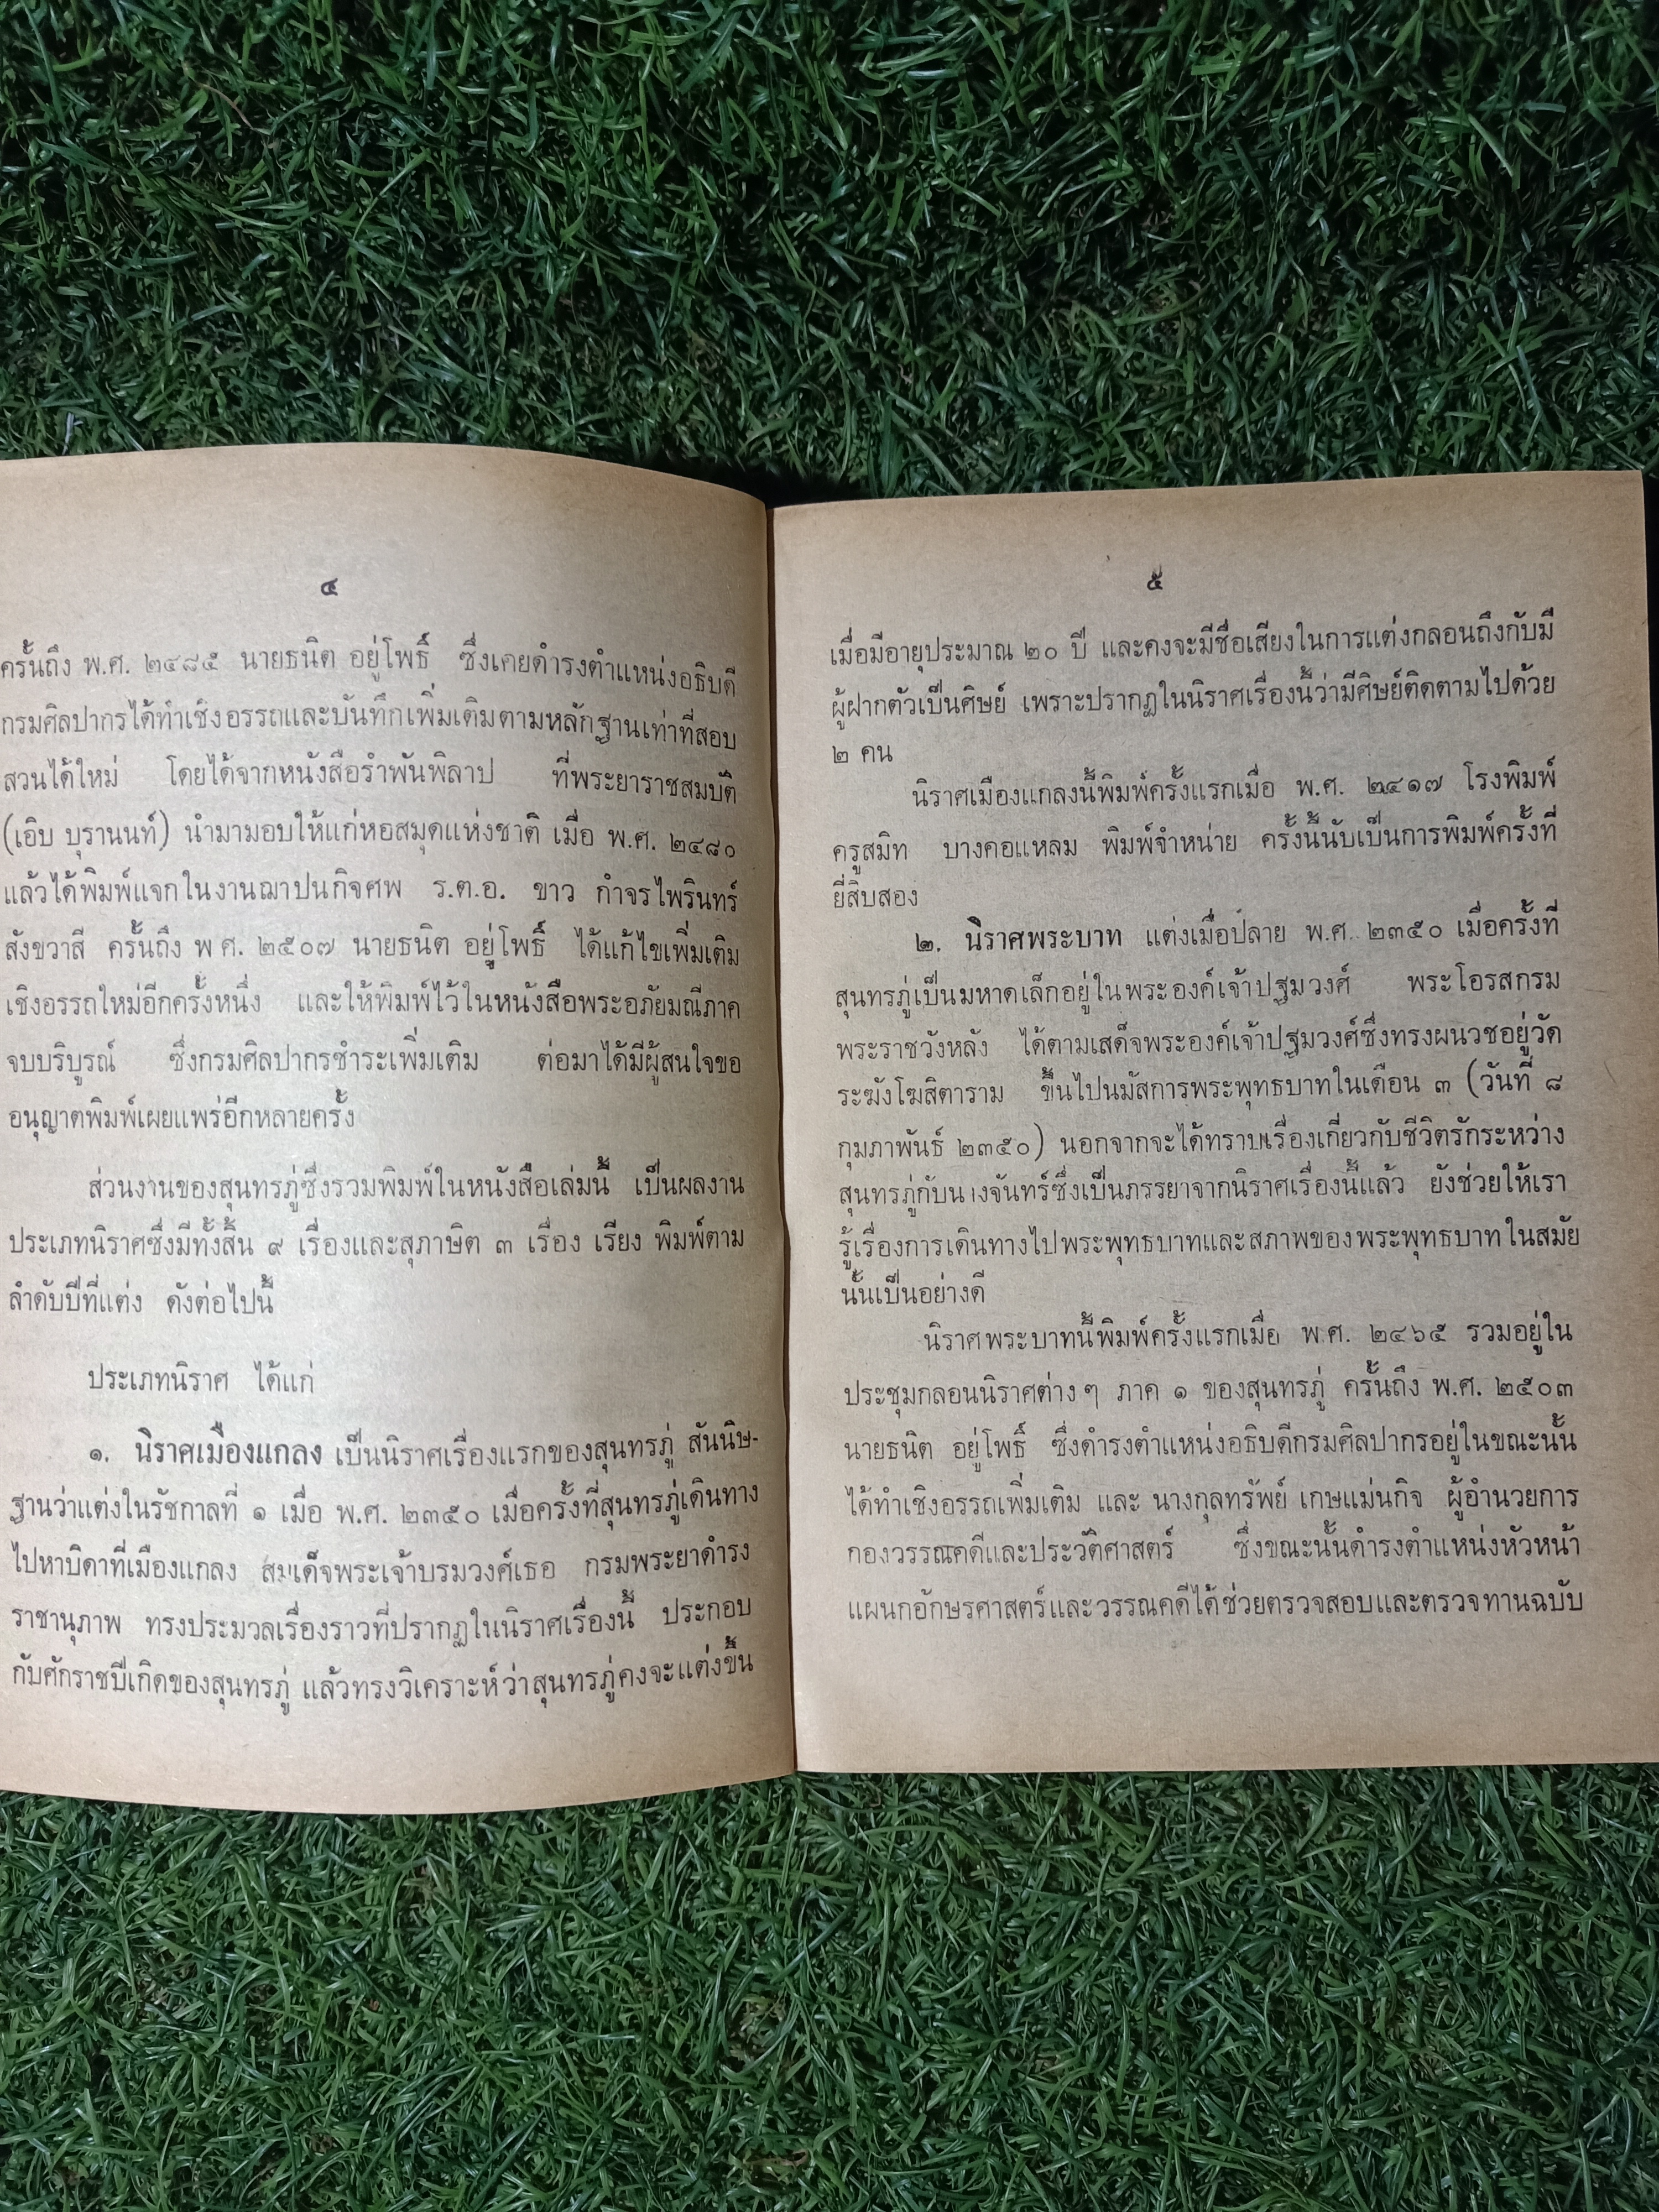 ๔
ครั้นถึง พ.ศ. ๒๔๘๕ นายธนิต อยู่โพธิ์ ซึ่งเคยดำรงตำแหน่งอธิบดี
กรมศิลปากรได้ทำเชิงอรรถและบันทึกเพิ่มเติมตามหลักฐานเท่าที่สอบ
สวนได้ใหม่ โดยได้จากหนังสือรำพันพิลาป ที่พระยาราชสมบัติ
(เอิบ บุรานนท์) นำมามอบให้แก่หอสมุดแห่งชาติ เมื่อ พ.ศ. ๒๔๘๐
แล้วได้พิมพ์แจกในงานฌาปนกิจศพ ร.ต.อ. ขาว กำจรไพรินทร์
สังขวาสี ครั้นถึง พ ศ. ๒๕๐๗ นายธนิต อยู่โพธิ์ ได้แก้ไขเพิ่มเติม
เชิงอรรถใหม่อีกครั้งหนึ่ง และให้พิมพ์ไว้ในหนังสือพระอภัยมณีภาค
จบบริบูรณ์ ซึ่งกรมศิลปากรชำระเพิ่มเติม ต่อมาได้มีผู้สนใจขอ
อนุญาตพิมพ์เผยแพร่อีกหลายครั้ง
ส่วนงานของสุนทรภู่ซึ่งรวมพิมพ์ในหนังสือเล่มนี้ เป็นผลงาน
ประเภทนิราศซึ่งมีทั้งสิ้น ๙ เรื่องและสุภาษิต ๓ เรื่อง เรียง พิมพ์ตาม
ลำดับปีที่แต่ง ดังต่อไปนี้
ประเภทนิราศ ได้แก่
๑. นิราศเมืองแกลง เป็นนิราศเรื่องแรกของสุนทรภู่ สันนิษ-
ฐานว่าแต่งในรัชกาลที่ ๑ เมื่อ พ.ศ. ๒๓๕๐ เมื่อครั้งที่สุนทรภู่เดินทาง
ไปหาบิดาที่เมืองแกลง สมเด็จพระเจ้าบรมวงศ์เธอ กรมพระยาดำรง
ราชานุภาพ ทรงประมวลเรื่องราวที่ปรากฏในนิราศเรื่องนี้ ประกอบ
กับศักราชปีเกิดของสุนทรภู่ แล้วทรงวิเคราะห์ว่าสุนทรภู่คงจะแต่งขึ้น
๕
เมื่อมีอายุประมาณ ๒๐ ปี และคงจะมีชื่อเสียงในการแต่งกลอนถึงกับมี
ผู้ฝากตัวเป็นศิษย์ เพราะปรากฏในนิราศเรื่องนี้ว่ามีศิษย์ติดตามไปด้วย
๒ คน
นิราศเมืองแกลงนี้พิมพ์ครั้งแรกเมื่อ พ.ศ. ๒๔๑๗ โรงพิมพ์
ครูสมิท บางคอแหลม พิมพ์จำหน่าย ครั้งนี้นับเป็นการพิมพ์ครั้งที่
ยี่สิบสอง
๒. นิราศพระบาท แต่งเมื่อปลาย พ.ศ. ๒๓๕๐ เมื่อครั้งที่
สุนทรภู่เป็นมหาดเล็กอยู่ในพระองค์เจ้าปฐมวงศ์ พระโอรสกรม
พระราชวังหลัง ได้ตามเสด็จพระองค์เจ้าปฐมวงศ์ซึ่งทรงผนวชอยู่วัด
ระฆังโฆสิตาราม ขึ้นไปนมัสการพระพุทธบาทในเดือน ๓ (วันที่ ๘
กุมภาพันธ์ ๒๓๕๐) นอกจากจะได้ทราบเรื่องเกี่ยวกับชีวิตรักระหว่าง
สุนทรภู่กับนางจันทร์ซึ่งเป็นภรรยาจากนิราศเรื่องนี้แล้ว ยังช่วยให้เรา
รู้เรื่องการเดินทางไปพระพุทธบาทและสภาพของพระพุทธบาทในสมัย
นั้นเป็นอย่างดี
นิราศพระบาทนี้พิมพ์ครั้งแรกเมื่อ พ.ศ. ๒๔๖๕ รวมอยู่ใน
ประชุมกลอนนิราศต่างๆ ภาค ๑ ของสุนทรภู่ ครั้นถึง พ.ศ. ๒๕๐๓
นายธนิต อยู่โพธิ์ ซึ่งดำรงตำแหน่งอธิบดีกรมศิลปากรอยู่ในขณะนั้น
ได้ทำเชิงอรรถเพิ่มเติม และ นางกุลทรัพย์ เกษแม่นกิจ ผู้อำนวยการ
กองวรรณคดีและประวัติศาสตร์ ซึ่งขณะนั้นดำรงตำแหน่งหัวหน้า
แผนกอักษรศาสตร์และวรรณคดีได้ช่วยตรวจสอบและตรวจทานฉบับ